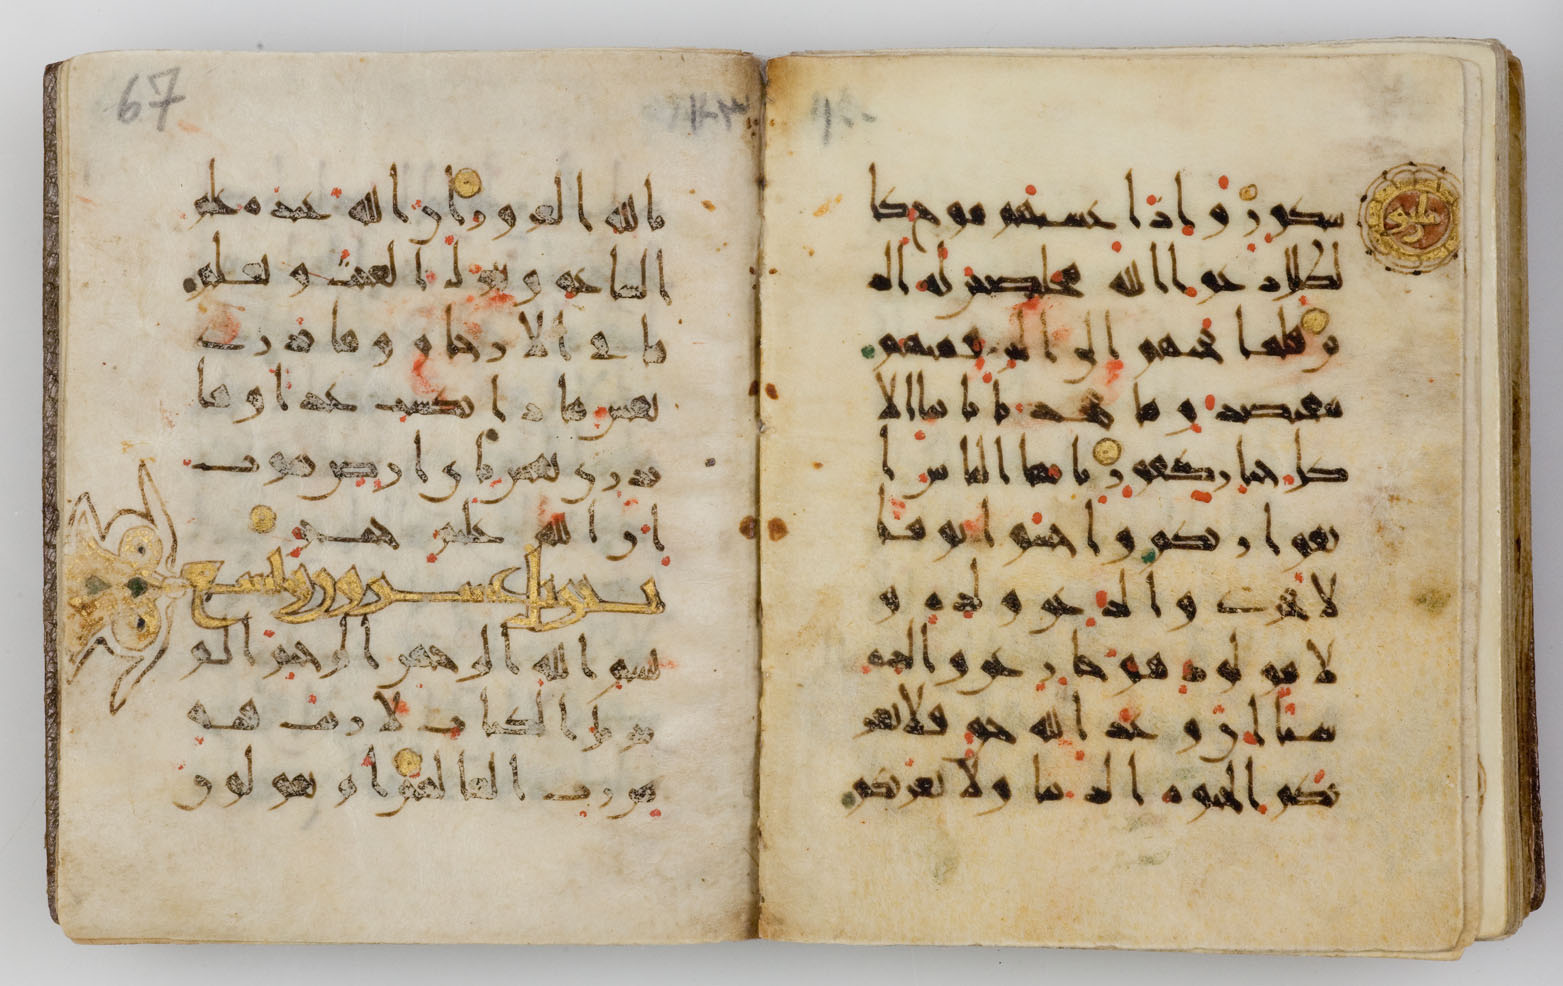 شكور وإذا غشيهم موج كا
لظلل دعوا الله مخلصين له الد
ين فلما نجيهم إلى البر فمنهم
مقتصد وما يجحد بآيتنا إلا
كل ختار كفور يأيها الناس ا
تقوا ربكم واخشوا يوما
لا يجزي والد عن ولده و
لا مولود هو جاز عن والده
شيئا إن وعد الله حق فلا تغر
نكم الحيوة الدنيا ولا يغرنكم
67
بالله الغرور إن الله عنده علم
الساعة وينزل الغيث ويعلم
ما في الأرحام وما تدري
نفس ماذا تكسب غدا وما
تدري نفس بأي أرض تموت
إن الله عليم خبير
تنزيل عشرون وتسع
بسم الله الرحمن الرحيم الم
تنزيل الكتاب لا ريب فيه
من رب العالمين أم يقولون